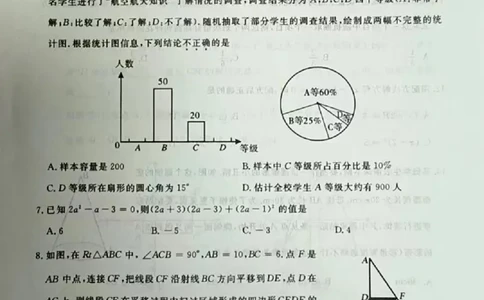 名学生进行了“航空航天知识”了解情况的调查,调查结果分为A、B、C、D四个等级(A:非常了
解;B:比较了解;C:了解;D:不了解).随机抽取了部分学生的调查结果,绘制成两幅不完整的统
计图.根据统计图信息,下列结论不正确的是
人数
50
20
0 A B C D 等级
A等60%
B等25%
D等
C等
A.样本容量是200 B.样本中C等级所占百分比是10%
C.D等级所在扇形的圆心角为15° D.估计全校学生A等级大约有900人
7.已知2a²-a-3=0,则(2a+3)(2a-3)+(2a-1)²的值是
A.6 B.-5 C.-3 D.4
8.如图,在Rt△ABC中,∠ACB=90°,AB=10,BC=6,点F是
AB中点,连接CF,把线段CF沿射线BC方向平移到DE,点D在
A
D
F